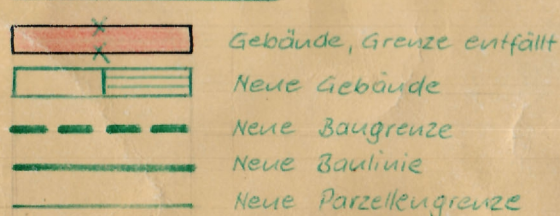 Gebäude, Grenze entfällt
Neue Gebäude
Neue Baugrenze
Neue Baulinie
Neue Parzellengrenze